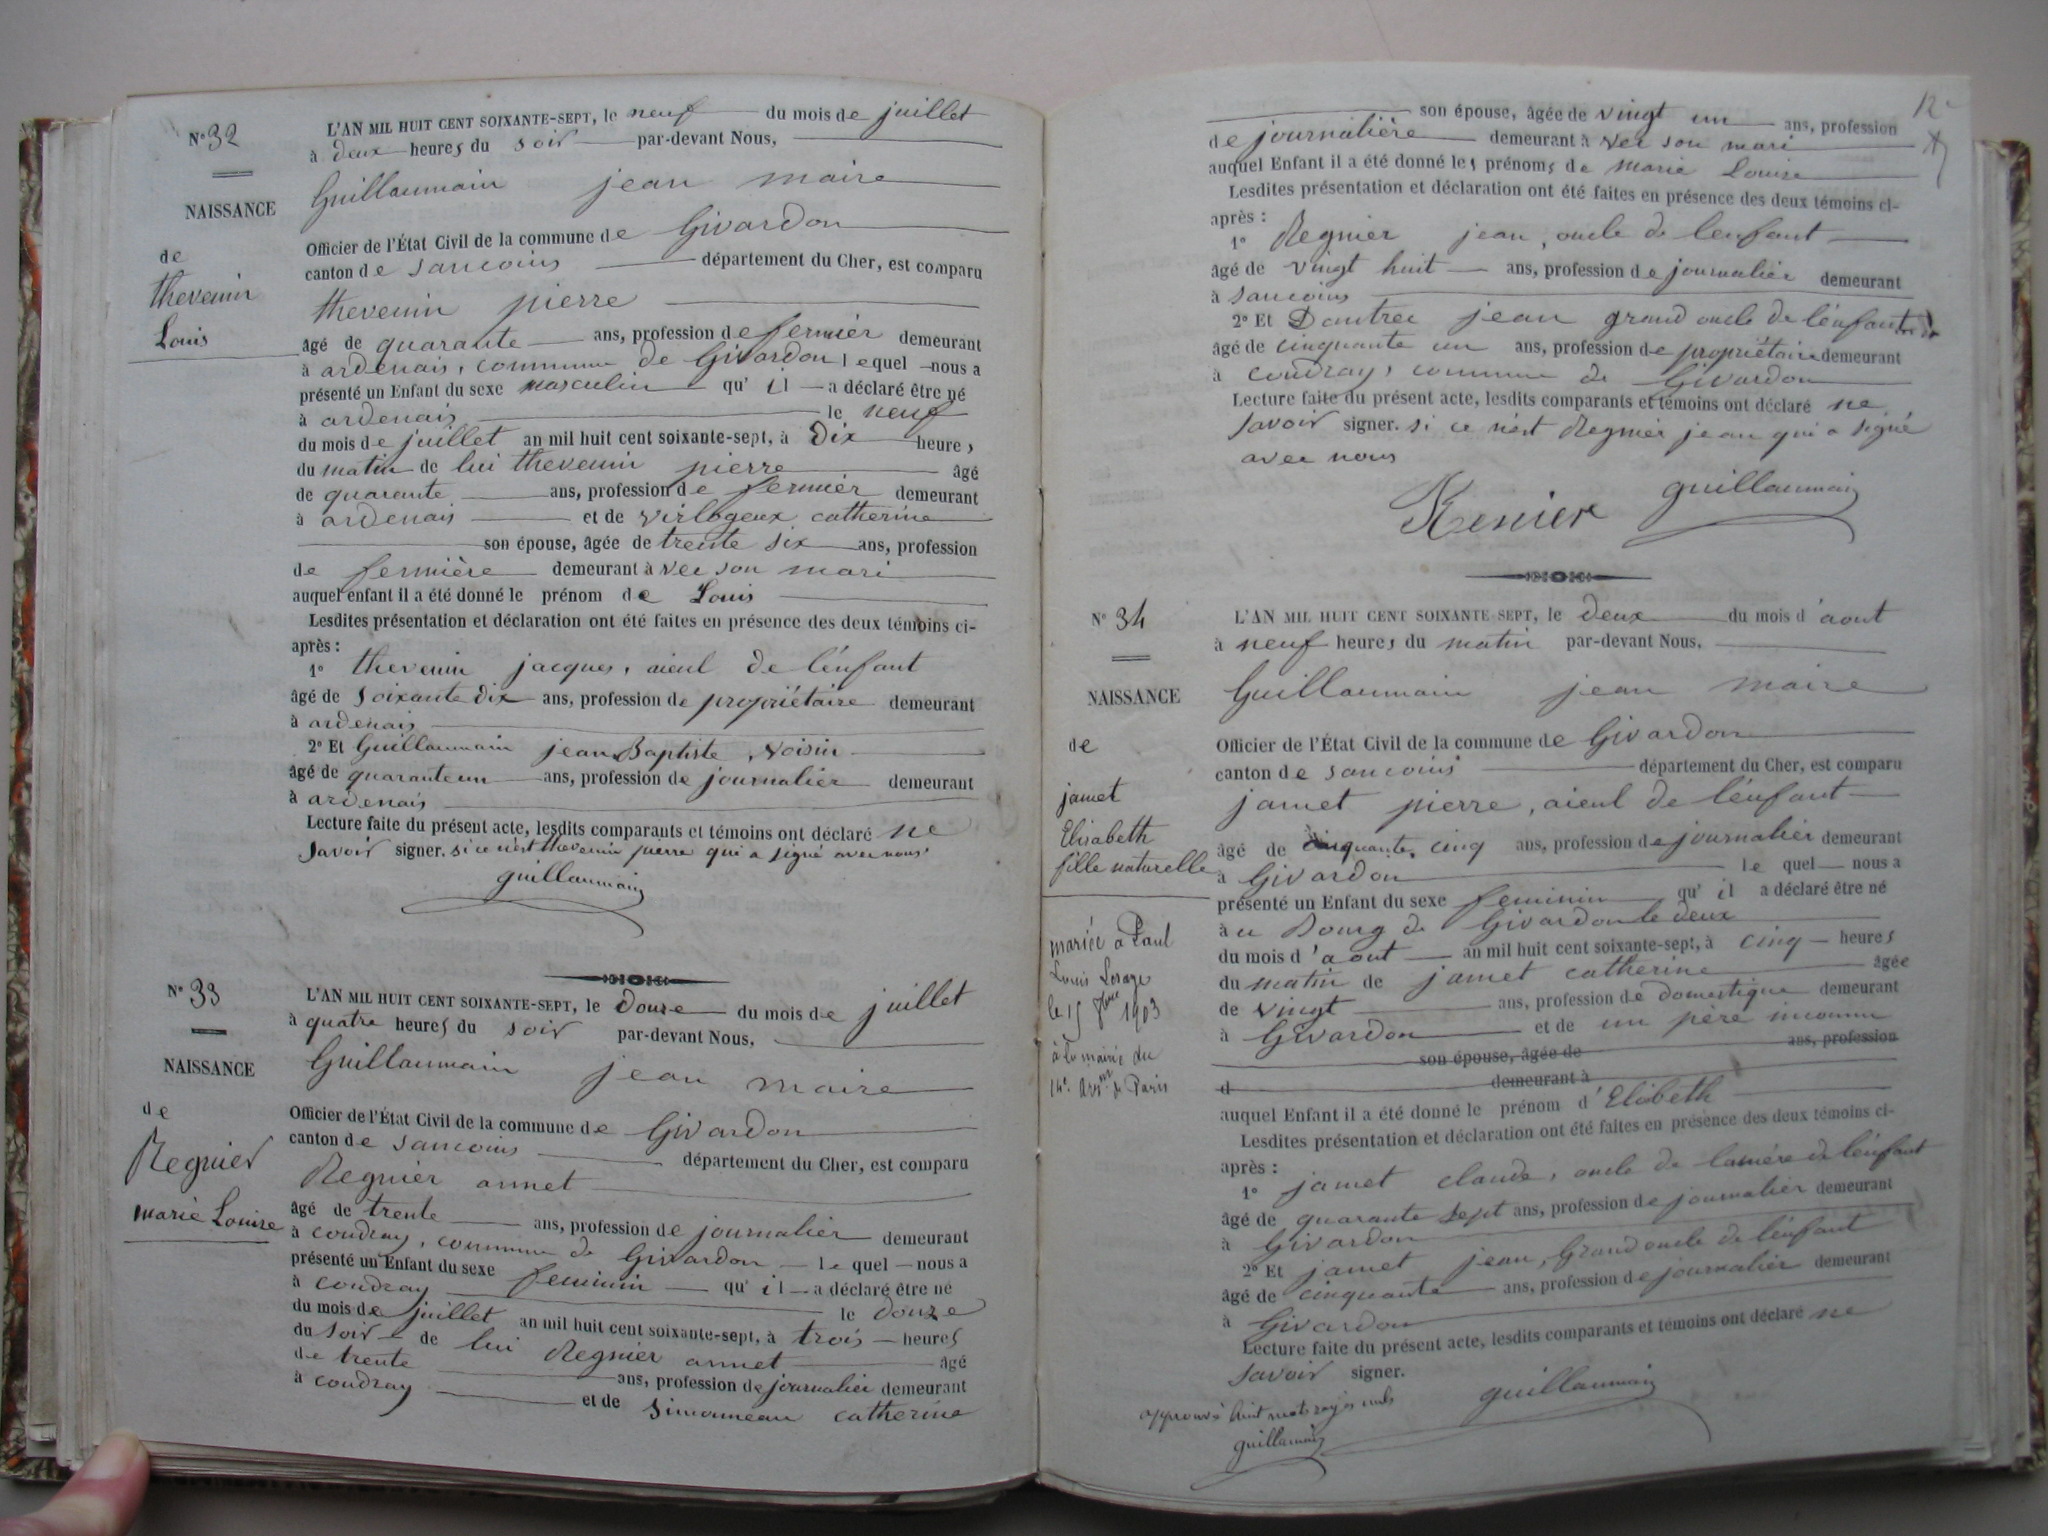 N° 32
L'AN MIL HUIT CENT SOIXANTE-SEPT, le neuf du mois de juillet
à deux heures du soir par-devant Nous,
NAISSANCE
Guillaumain jean maire
Officier de l'État Civil de la commune de Givardon
de
canton de sancoins département du Cher, est comparu
thevenin
Louis
thevenin pierre
âgé de quarante ans, profession de fermier demeurant
à ardenais, commune de Givardon lequel nous a
présenté un Enfant du sexe masculin qu'il a déclaré être né
à ardenais le neuf
du mois de juillet an mil huit cent soixante-sept, à Dix heures
du matin de lui thevenin pierre âgé
de quarante ans, profession de fermier demeurant
à ardenais et de virlogeux catherine
son épouse, âgée de trente six ans, profession
de fermière demeurant à vec son mari
auquel enfant il a été donné le prénom de Louis
Lesdites présentation et déclaration ont été faites en présence des deux témoins ci-
après :
1° thevenin jacques, aieul de l'enfant
âgé de soixante dix ans, profession de propriétaire demeurant
à ardenais
2° Et Guillaumain jean Baptiste, voisin
âgé de quarante un ans, profession de journalier demeurant
à ardenais
Lecture faite du présent acte, lesdits comparants et témoins ont déclaré ne
savoir signer. si ce n'est thevenin pierre qui a signé avec nous.
guillaumain
N° 33
L'AN MIL HUIT CENT SOIXANTE-SEPT, le Douze du mois de juillet
à quatre heures du soir par-devant Nous,
NAISSANCE
Guillaumain jean maire
de
Officier de l'État Civil de la commune de Givardon
canton de sancoins département du Cher, est comparu
Regnier
marie Louise
Regnier annet
âgé de trente ans, profession de journalier demeurant
à coudray, commune de Givardon lequel nous a
présenté un Enfant du sexe feminin qu'il a déclaré être né
à coudray le douze
du mois de juillet an mil huit cent soixante-sept, à trois heures
du soir de lui Regnier annet âgé
de trente ans, profession de journalier demeurant
à coudray et de simonneau catherine
12
son épouse, âgée de vingt un ans, profession
de journalière demeurant à vec son mari
auquel Enfant il a été donné les prénoms de marie Louise
Lesdites présentation et déclaration ont été faites en présence des deux témoins ci-
après :
1° Regnier jean, oncle de l'enfant
âgé de vingt huit ans, profession de journalier demeurant
à sancoins
2° Et Dautrec jean grand oncle de l'enfant
âgé de cinquante un ans, profession de propriétaire demeurant
à coudray, commune de Givardon
Lecture faite du présent acte, lesdits comparants et témoins ont déclaré ne
savoir signer. si ce n'est Regnier jean qui a signé
avec nous
Renier guillaumain
N° 34
L'AN MIL HUIT CENT SOIXANTE SEPT, le deux du mois d'aout
à neuf heures du matin par-devant Nous,
NAISSANCE
Guillaumain jean maire
de
Officier de l'État Civil de la commune de Givardon
canton de sancoins département du Cher, est comparu
jamet
Elisabeth
fille naturelle
jamet pierre, aieul de l'enfant
âgé de cinquante, cinq ans, profession de journalier demeurant
à Givardon le quel nous a
présenté un Enfant du sexe feminin qu'il a déclaré être né
à u Bourg de Givardon le deux
du mois d'aout an mil huit cent soixante-sept, à cinq heures
du matin de jamet catherine âgée
de vingt ans, profession de domestique demeurant
à Givardon et de un père inconnu
son épouse, âgée de ans, profession
d demeurant à
mariée à Paul
Louis Lesage
le 15 8bre 1903
à la mairie du
14e. Arrt de Paris
auquel Enfant il a été donné le prénom d'Elisbeth
Lesdites présentation et déclaration ont été faites en présence des deux témoins ci-
après :
1° jamet claude, oncle de la mère de l'enfant
âgé de quarante sept ans, profession de journalier demeurant
à Givardon
2° Et jamet jean, Grand oncle de l'enfant
âgé de cinquante ans, profession de journalier demeurant
à Givardon
Lecture faite du présent acte, lesdits comparants et témoins ont déclaré ne
savoir signer.
guillaumain
approuvé huit mots rayés nuls
guillaumain